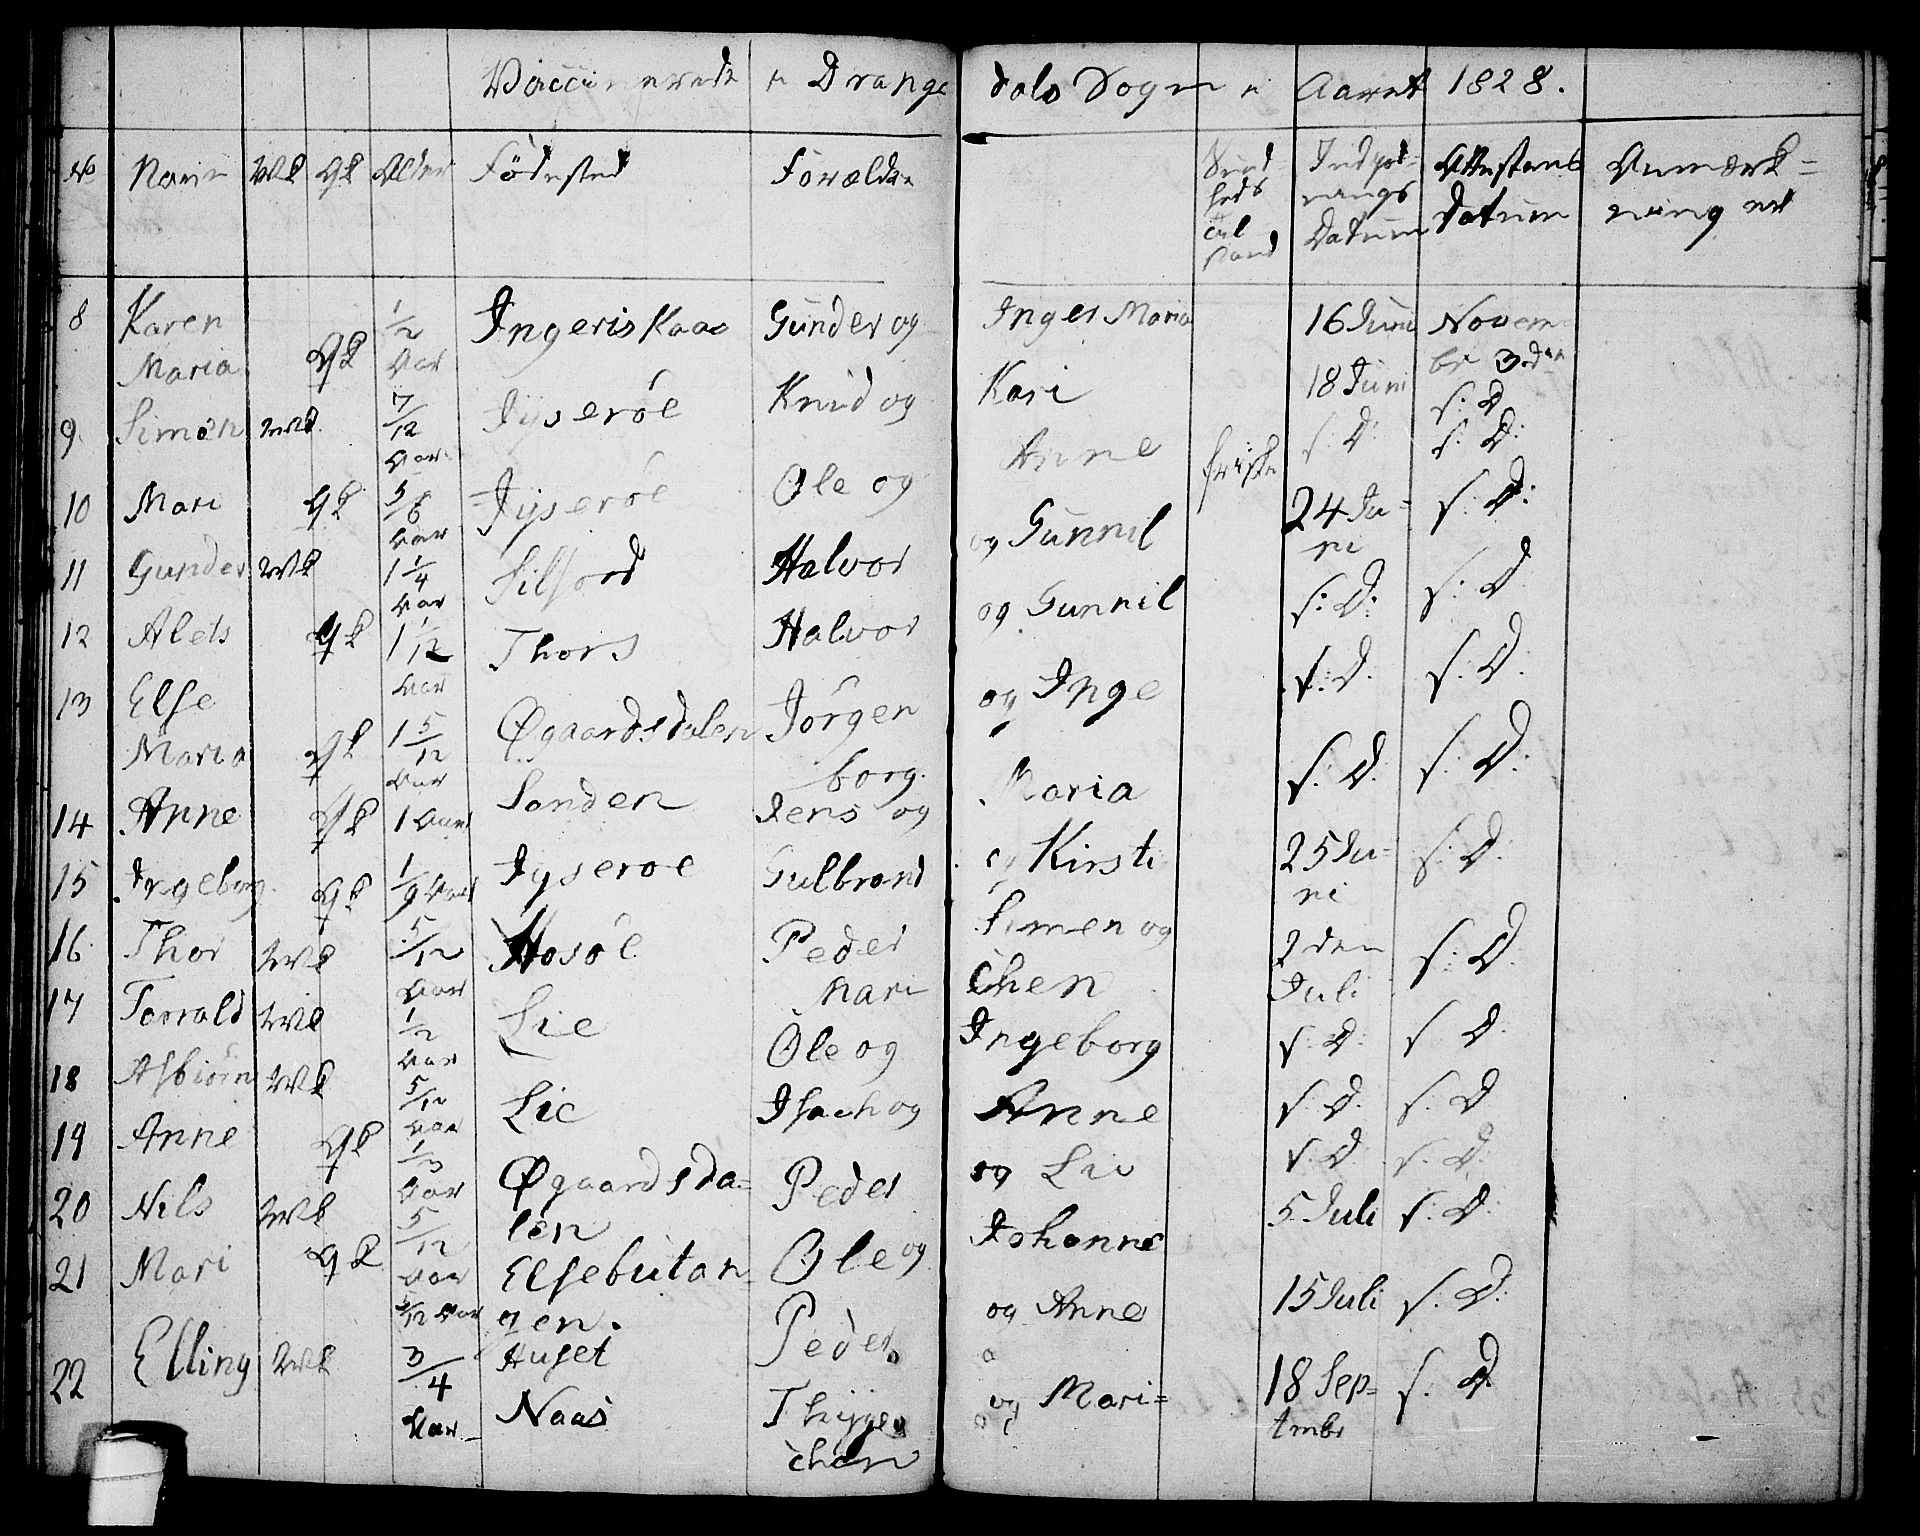 Vaccinerede i Drangedals Sogn i Aaret 1828.
No Navn Mk Qk Alder Fødested Forældre Sundheds Tilstand Indpodnings Datum Attestens Datum Anmærkninger
8 Karen Maria Qk 1/2 Aar Ingeriskaas Gunder og Inger Maria 16 Juni Novembr 3den
9. Simon Mk 7/12 Aar Jyserøe Knud og Kari 18 Juni s. D.
10 Mari Qk 5/6 Aar Jyserøe Ole og Anne friske s. D. s. D.
11 Gunder Mk 1 1/4 Aar Silford Halvor og Gunnil 24 Juni s. D.
12 Alets Qk 1 1/12 Aar Thors Halvor og Gunnil s. D. s. D.
13 Else Maria Qk 1 5/12 Aar Øgaardsdalen Jörgen og Inge s. D. s. D.
14 Anne Qk 1 Aar Sanden Jens og Maria s. D. s. D.
15 Ingeborg Qk 1/9 Aar Jyserøe Gulbrand og Kirsti 25 Juni s. D.
16. Thor Mk 5/12 Aar Hosøe Peder Simen og 2den Juli s. D.
17 Torrald Mk 1/2 Aar Lie Ole og Ingeborg s. D. s. D.
18 Asbiørn Mk 5/12 Aar Lie Isach og Anne s. D. s. D.
19 Anne Qk 1/3 Aar Øgaardsdalen Peder og Liv s. D. s. D.
20 Nils Mk 5/12 Aar Elsebutangen. Ole og Johanne 5 Juli s. D.
21 Mari Qk 5/12 Aar Huset Peder og Anne 15 Juli s. D.
22 Elling Mk 3/4 Aar Naas og Mari= 18 Sep=tmbr s. D.